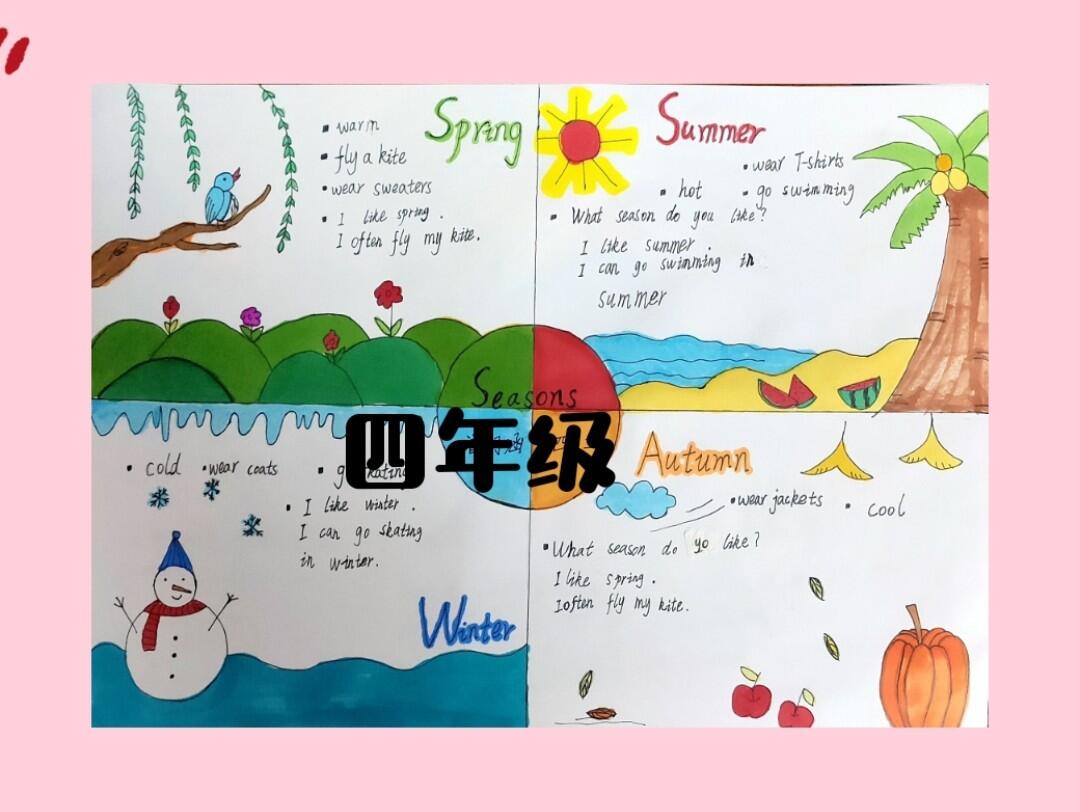 Spring
warm
fly a kite
wear sweaters
I like spring.
I often fly my kite.
Summer
wear T-shirts
hot
go swimming
What season do you like?
I like summer.
I can go swimming in
summer
Seasons
四年级
cold
wear coats
I like winter.
I can go skating
in winter.
Winter
Autumn
wear jackets
cool
What season do yo like?
I like spring.
I often fly my kite.